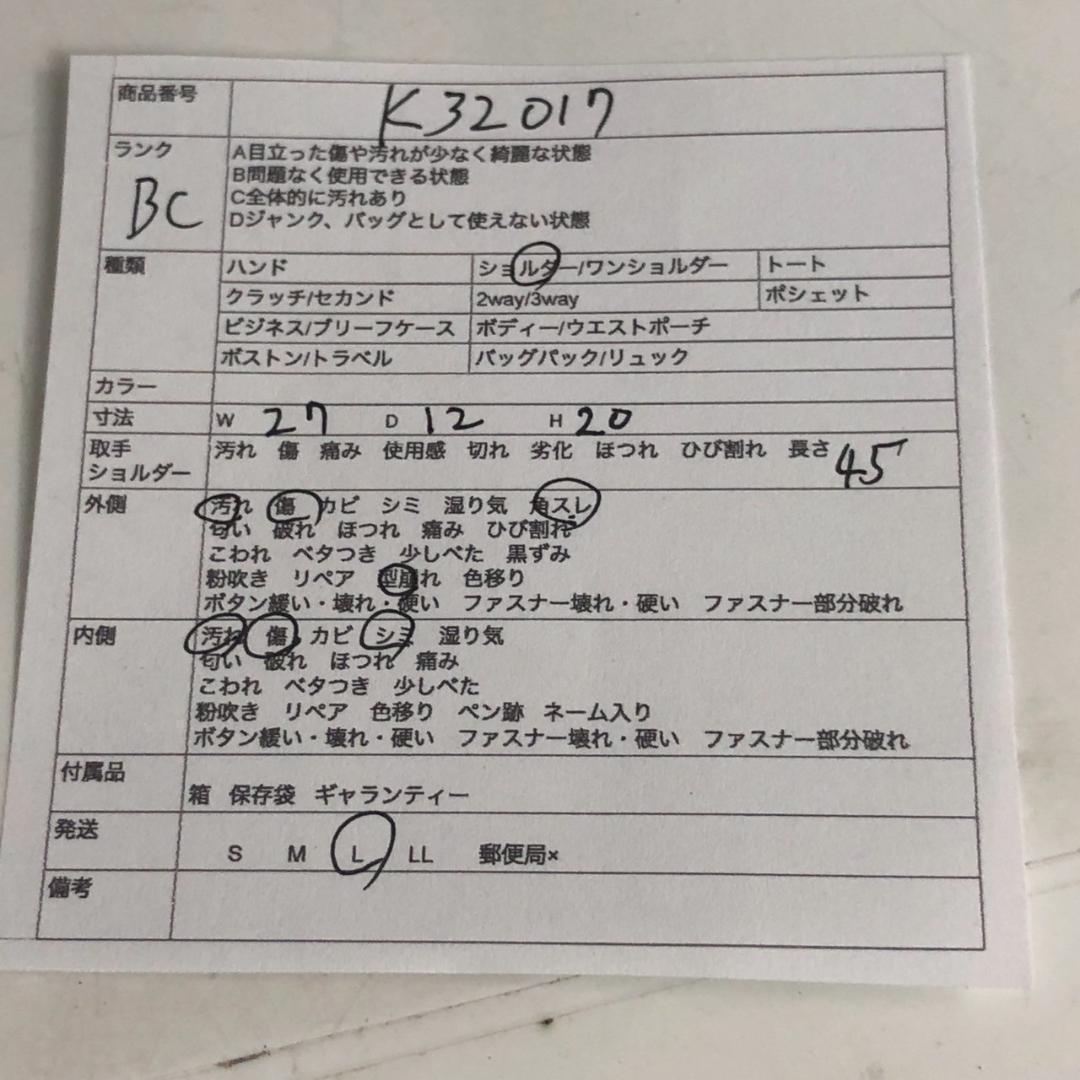 商品番号 K32017
ランク BC
A目立った傷や汚れが少なく綺麗な状態
B問題なく使用できる状態
C全体的に汚れあり
Dジャンク、バッグとして使えない状態
種類 ハンド ショルダー/ワンショルダー トート
クラッチ/セカンド 2way/3way ポシェット
ビジネス/ブリーフケース ボディー/ウエストポーチ
ボストン/トラベル バッグパック/リュック
カラー
寸法 W 27 D 12 H 20
取手 汚れ 傷 痛み 使用感 切れ 劣化 ほつれ ひび割れ 長さ 45
ショルダー
外側 汚れ 傷 カビ シミ 湿り気 角スレ
匂い 破れ ほつれ 痛み ひび割れ
こわれ ベタつき 少しべた 黒ずみ
粉吹き リペア 型崩れ 色移り
ボタン緩い・壊れ・硬い ファスナー壊れ・硬い ファスナー部分破れ
内側 汚れ 傷 カビ シミ 湿り気
匂い 破れ ほつれ 痛み
こわれ ベタつき 少しべた
粉吹き リペア 色移り ペン跡 ネーム入り
ボタン緩い・壊れ・硬い ファスナー壊れ・硬い ファスナー部分破れ
付属品
箱 保存袋 ギャランティー
発送
S M L LL 郵便局×
備考